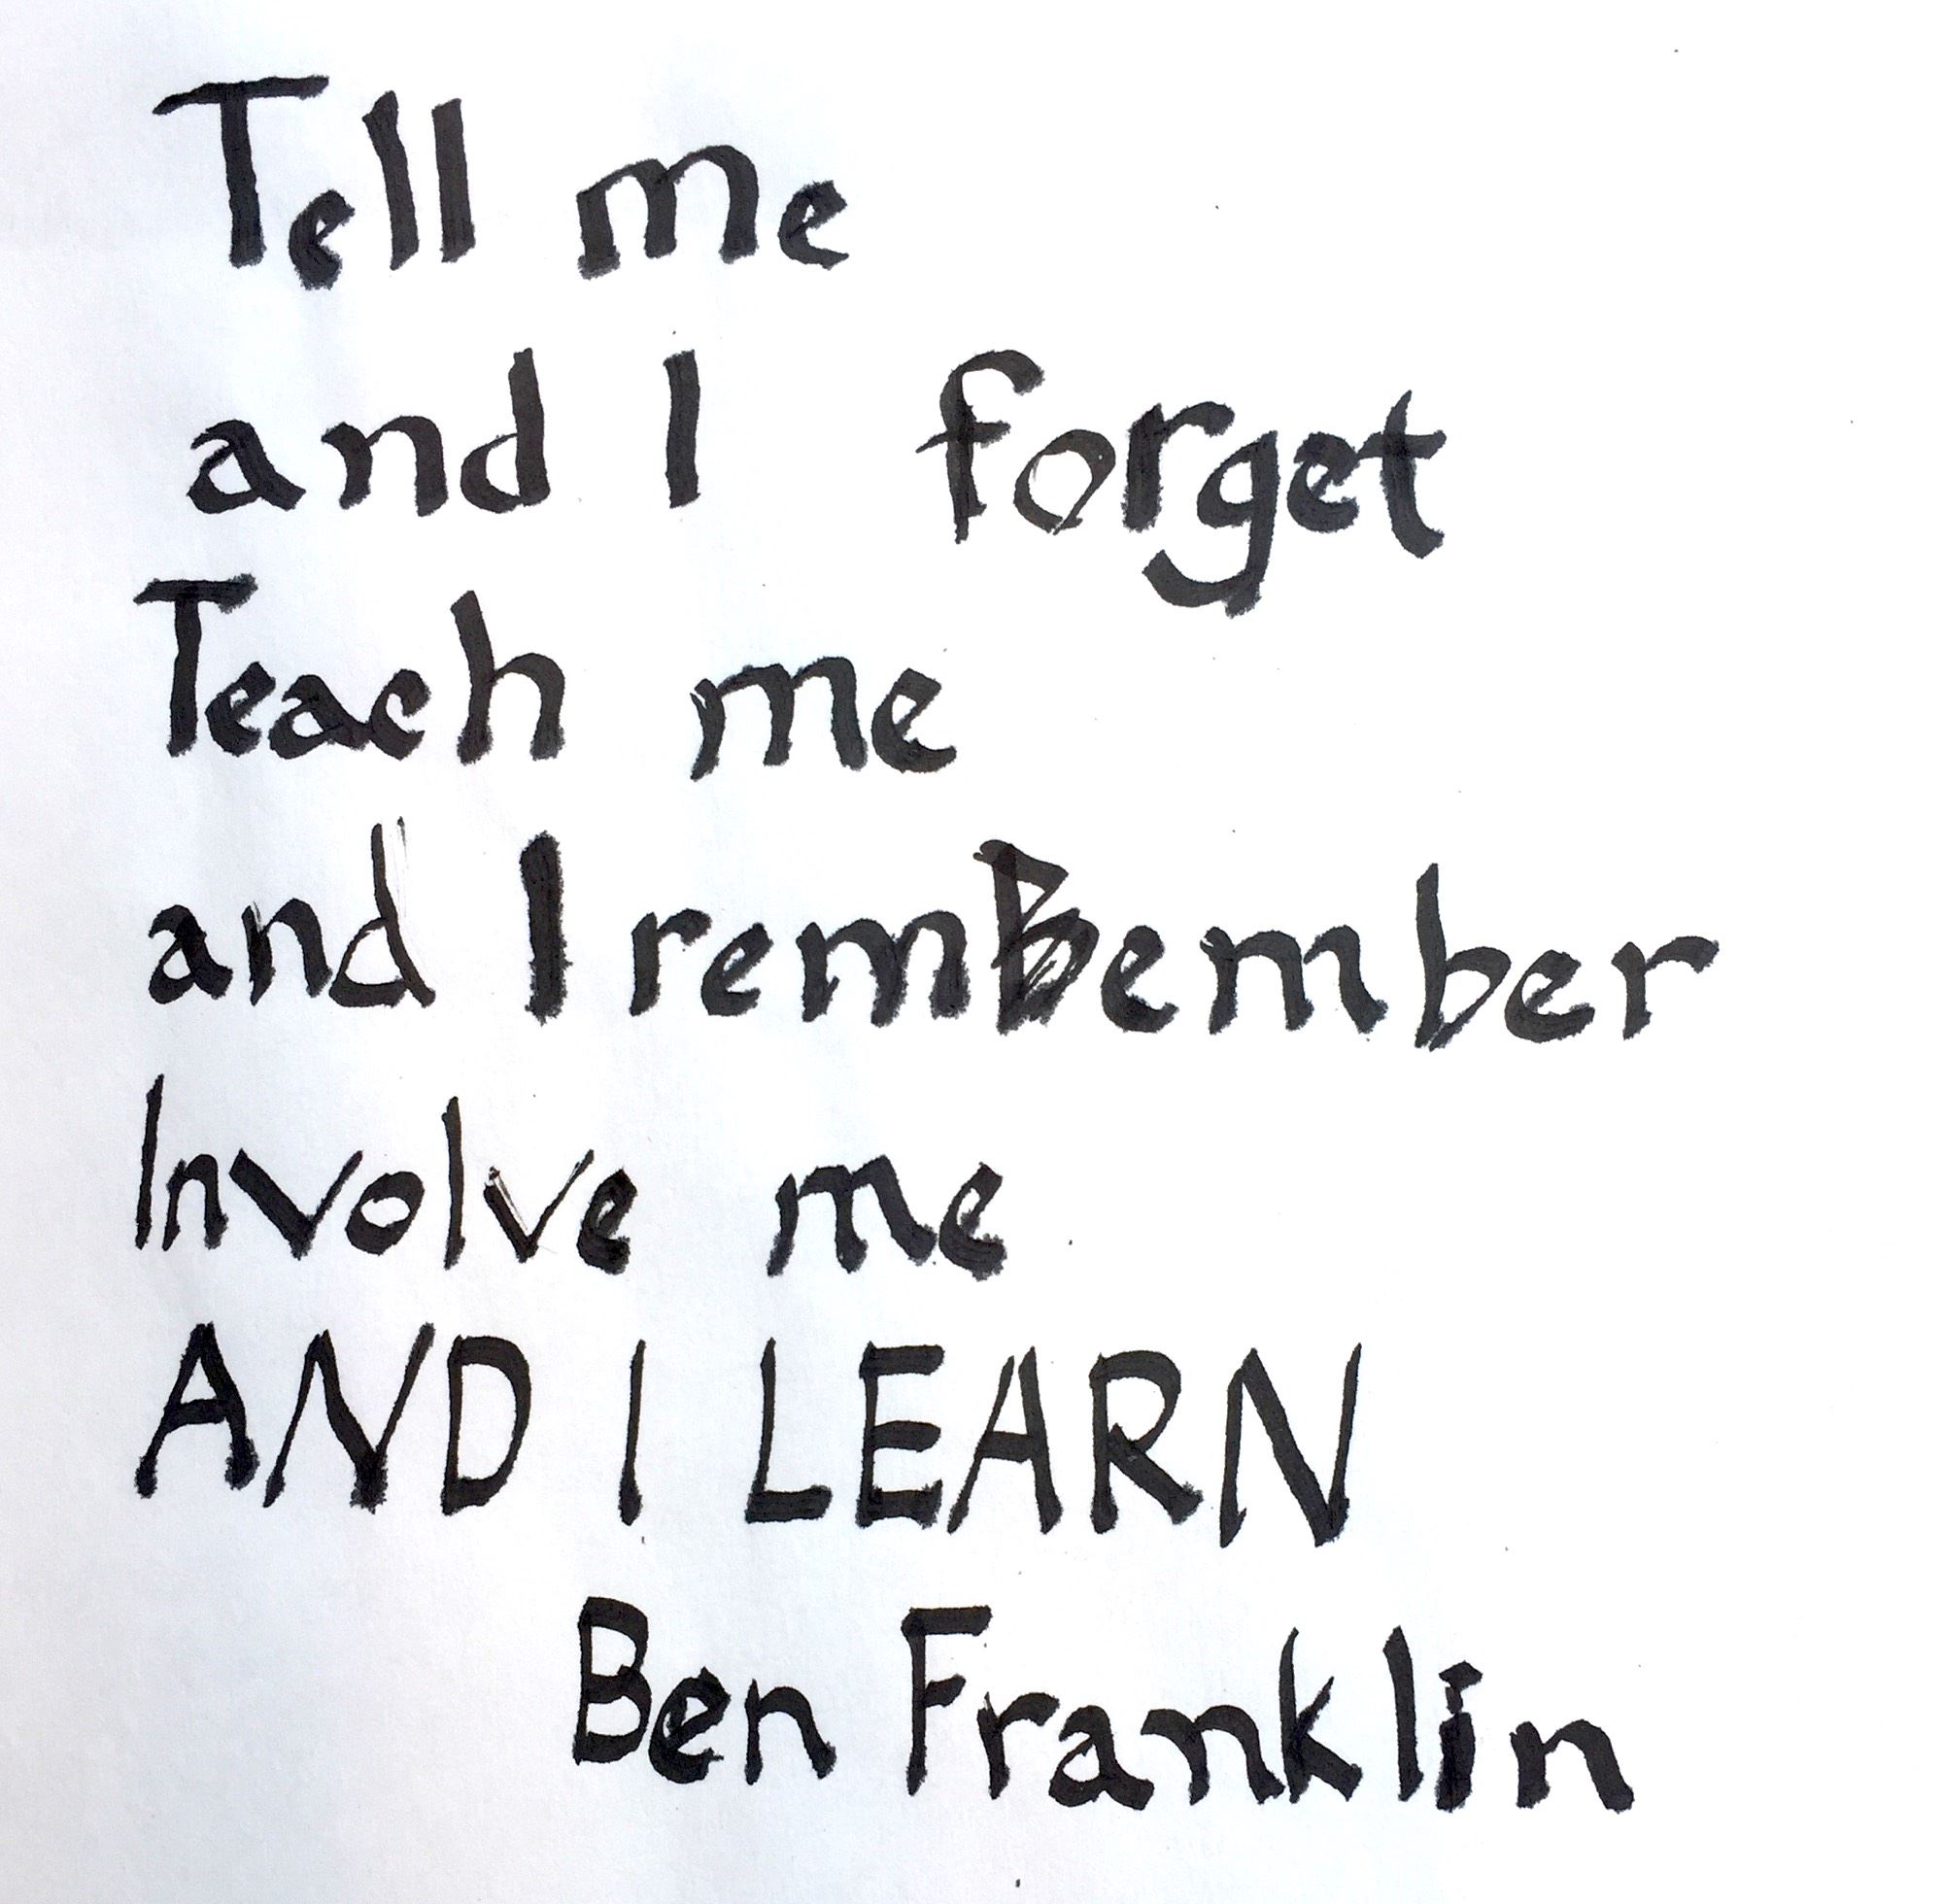 Tell me
and I forget
Teach me
and I remBember
Involve me
AND I LEARN
Ben Franklin